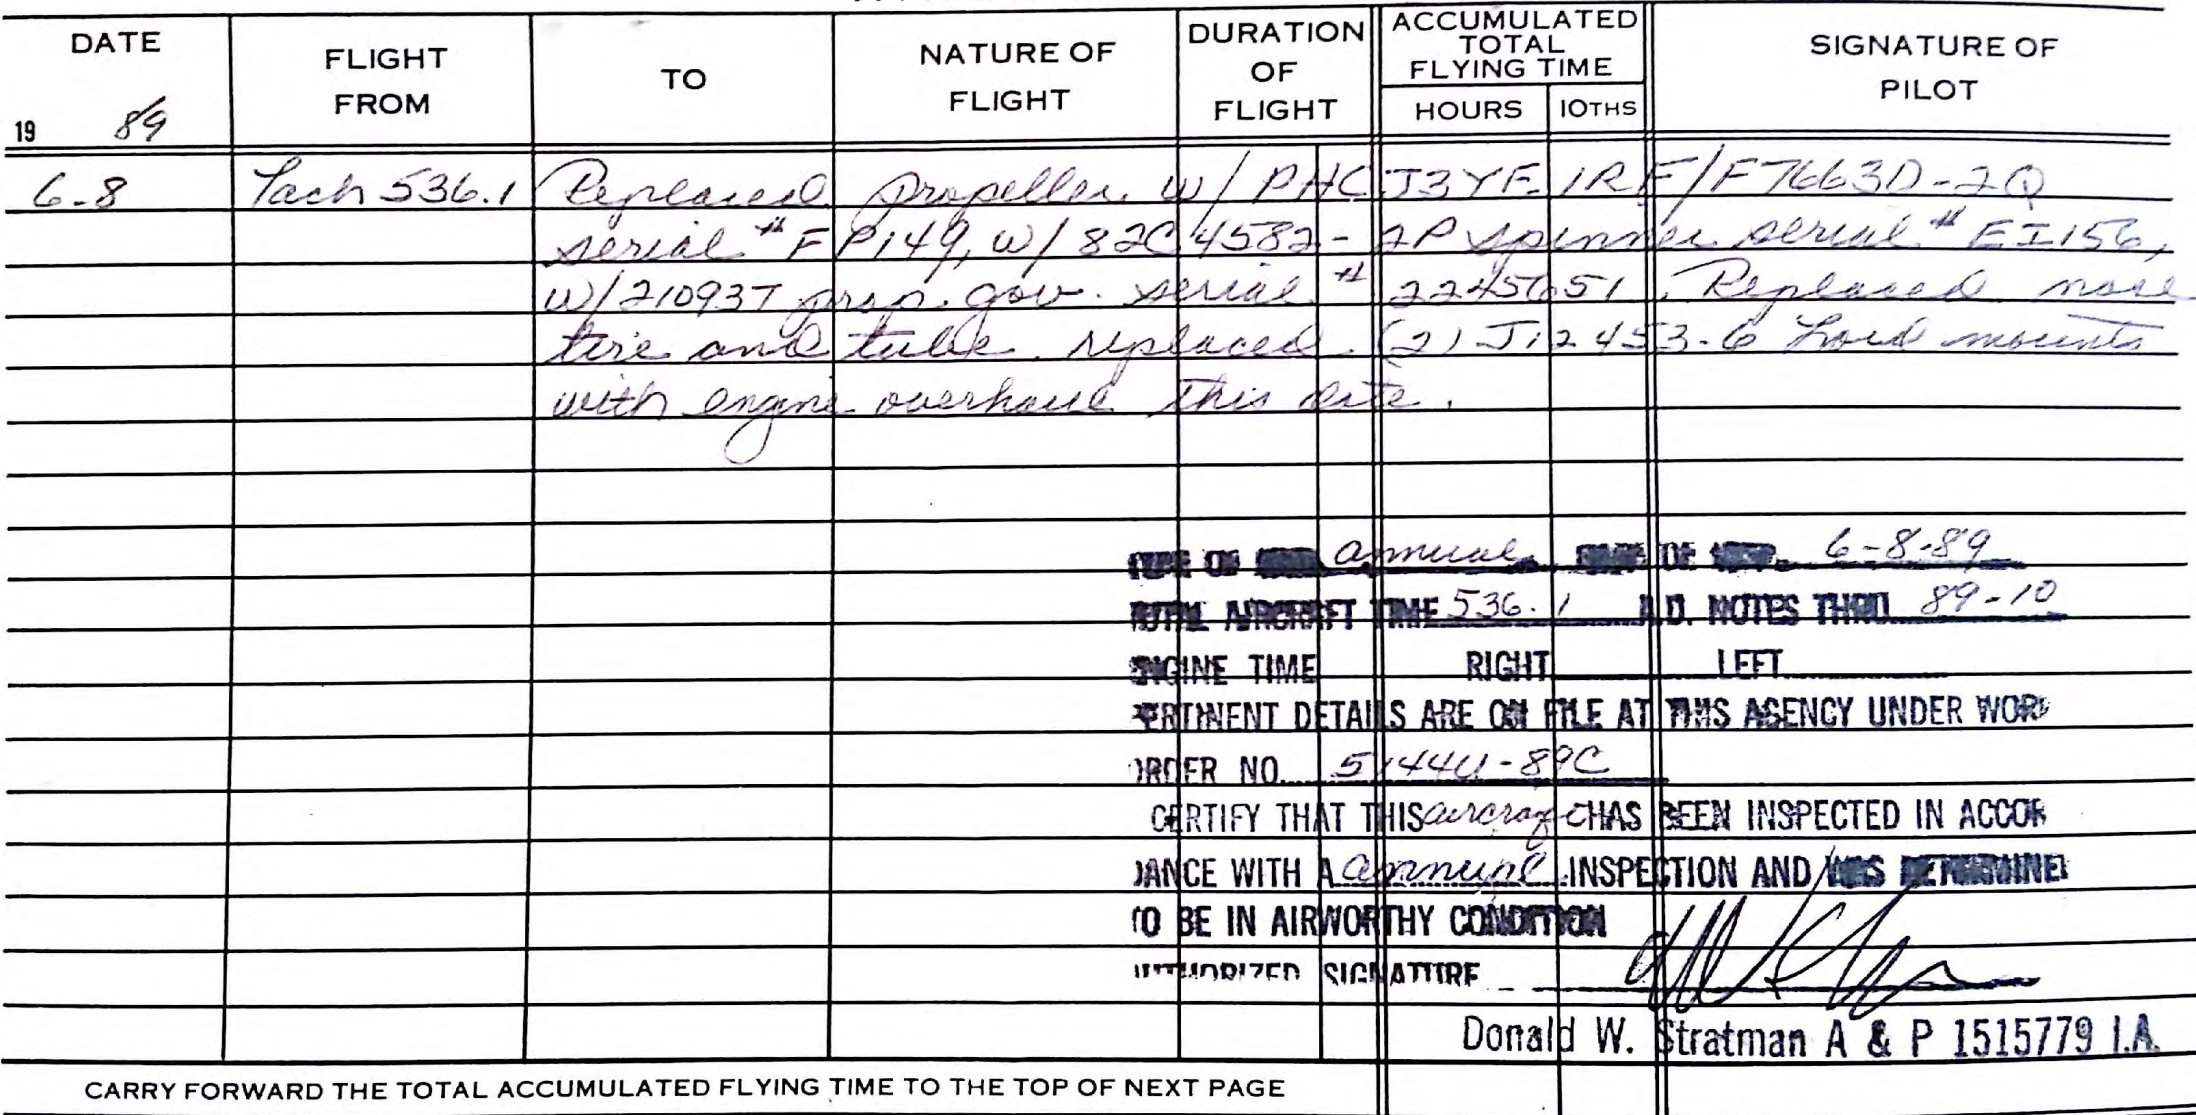 DATE FLIGHT FROM TO NATURE OF FLIGHT DURATION OF FLIGHT ACCUMULATED TOTAL FLYING TIME HOURS 10THS SIGNATURE OF PILOT
19 89
6-8 Tach 536.1 Replaced propeller w/ PHC J3YF 1RF/F7663D-2Q
serial # FP149, w/ 82C4582-2P spinner serial # EI156,
w/210937 prop. gov. serial # 2245651. Replaced nose
tire and tube. replaced (2) J12453-6 Lord mounts
with engine overhaul this date.
annual OF 6-8-89
TOTAL AIRCRAFT TIME 536.1 A.D. NOTES THRU 89-10
ENGINE TIME RIGHT LEFT
PERTINENT DETAILS ARE ON FILE AT THIS AGENCY UNDER WORK
ORDER NO. 5144U-89C
CERTIFY THAT THIS aircraft HAS BEEN INSPECTED IN ACCOR
DANCE WITH A annual INSPECTION AND WAS DETERMINED
TO BE IN AIRWORTHY CONDITION
AUTHORIZED SIGNATURE
Donald W. Stratman A & P 1515779 I.A.
CARRY FORWARD THE TOTAL ACCUMULATED FLYING TIME TO THE TOP OF NEXT PAGE